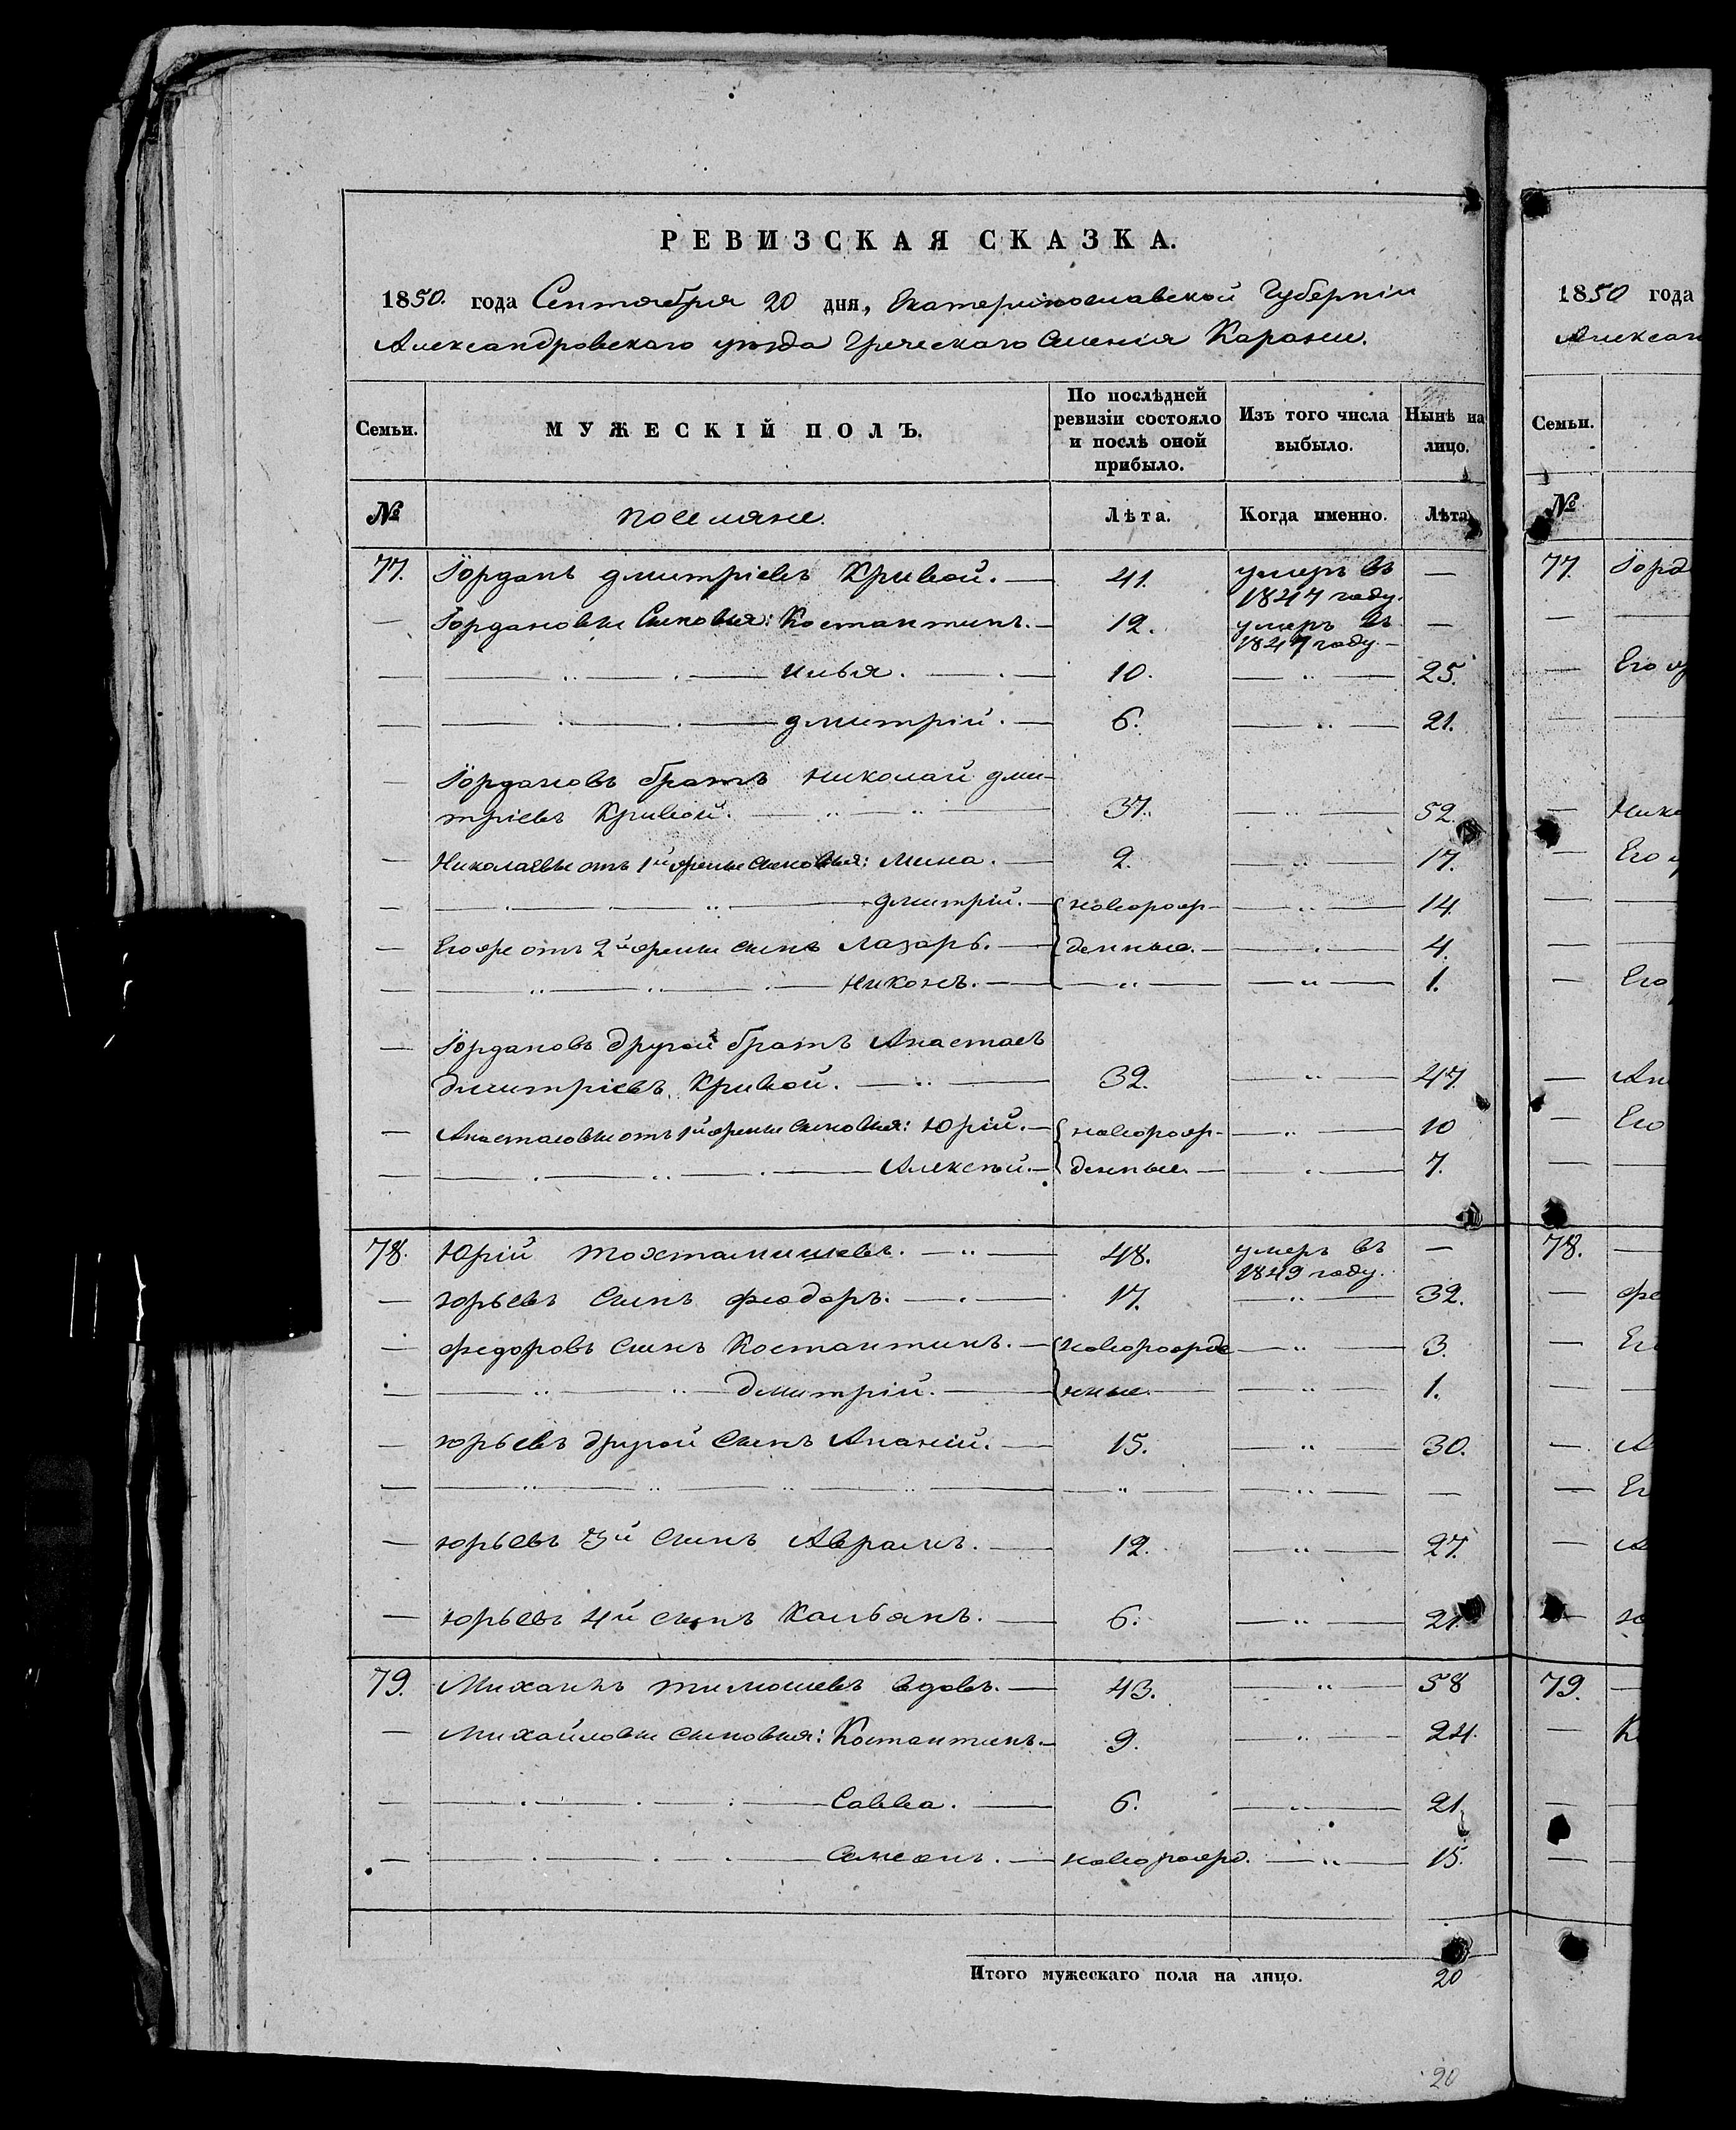 РЕВИЗСКАЯ СКАЗКА.
1850. года Сентября 20 дня, Екатеринославской Губерніи
Александровскаго уѣзда Греческаго Селенія Карани.
Семьи. МУЖЕСКІЙ ПОЛЪ. По послѣдней ревизіи состояло и послѣ оной прибыло. Изъ того числа выбыло. Нынѣ на лицо.
№ поселяне. Лѣта. Когда именно. Лѣта
77. Іорданъ дмитріевъ Кривой. — 41. умеръ въ 1847 году. —
— Іордановы Сыновья: Костантинъ. — 12. умеръ въ 1847 году — —
— — „ — . — илья. — . — 10. — „ — 25.
— — . — . — дмитрій. — 6. — „ — 21.
— Іордановъ братъ николай дми-
тріевъ Кривой. — „ — „ — 37. — „ — 52.
— Николаевы отъ 1й жены сыновья: мина. — 2. — „ — 17.
— — . — . — „ — дмитрій. — новорож- — „ — 14.
— Его же отъ 2й жены сынъ лазарь. — денные. — — . — 4.
— — „ — „ — . — никонъ. — — „ — — „ — 1.
— Іордановъ другой братъ Анастасъ
дмитріевъ Кривой. — „ — 32. — „ — 47.
— Анастасовы отъ 1й жены сыновья: Юрій. — новорож- — „ — 10
— — . — „ — . — Алексѣй. — денные. — — . — 7.
78. Юрій тохтамышевъ. — „ — 48. умеръ въ 1849 году. —
— юрьевъ Сынъ феодоръ. — . — 17. — „ — 32.
— федоровъ сынъ Костантинъ. — новорожде — „ — 3.
— — „ — „ — дмитрій. — нные. — — „ — 1.
— юрьевъ другой Сынъ Ананій. — 15. — „ — 30.
— — „ — „ — „ — „ — — „ — — „ — —
— юрьевъ 3й сынъ Аврамъ. — 12. — „ — 27.
— юрьевъ 4й сынъ Кальянъ. — 6. — „ — 21.
79. Михаилъ тимошевъ вдовъ. — 43. — „ — 58
— Михайловы сыновья: Костантинъ. — 9. — „ — 24.
— — . — . — . — Савва. — 6. — „ — 21.
— — . — . — . — Симеонъ. — новорожд. — „ — 15.
Итого мужескаго пола на лицо. 20
20
1850 года
Алексан
Семьи.
№
77. Іорд
—
— Его
—
— Нико
— Его
—
—
— Его
— Ан
— Его
—
78. —
— фе
— Ег
—
— А
— Ег
— А
— ю
79. —
— К
—
—